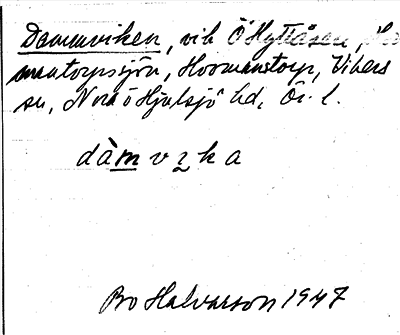 Dammviken, vik Ö Hyttåsen,
mantorpssjön, Hormanstorp, Vikers
sn, Nora o Hjulsjö hd, Ör. l.
dàmvıka
Bo Halvarson 1947